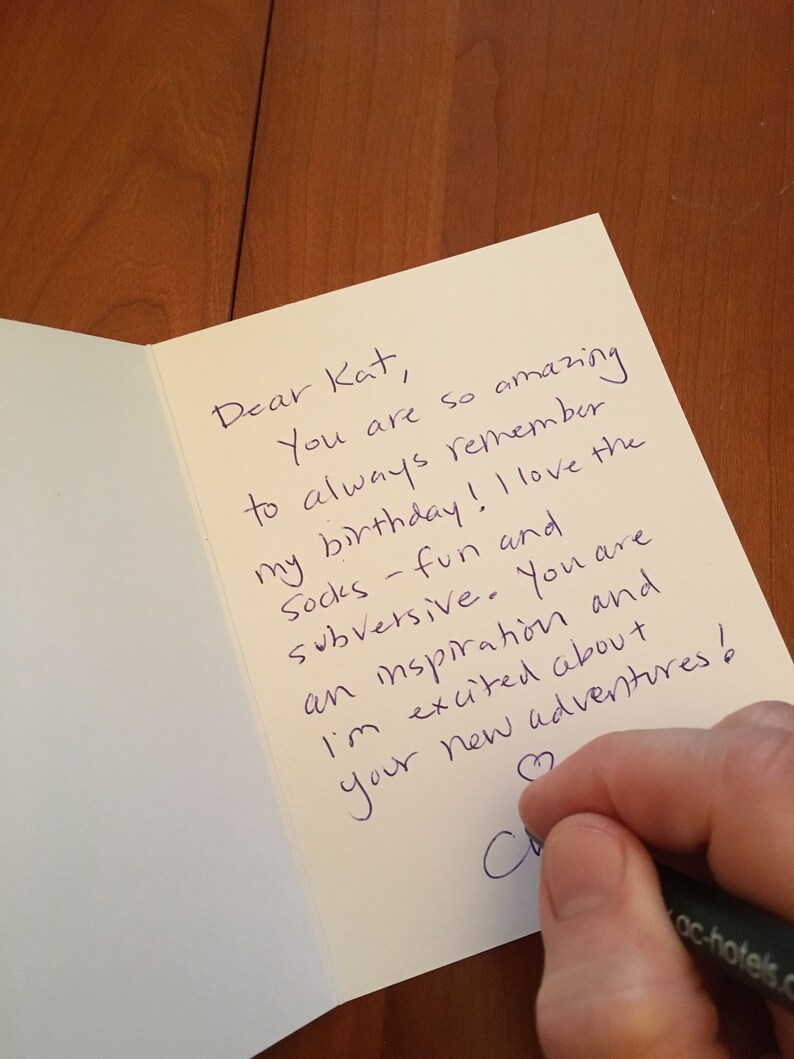 Dear Kat,
You are so amazing
to always remember
my birthday! I love the
socks - fun and
subversive. You are
an inspiration and
I'm excited about
your new adventures!
♡
ac-hotels.c